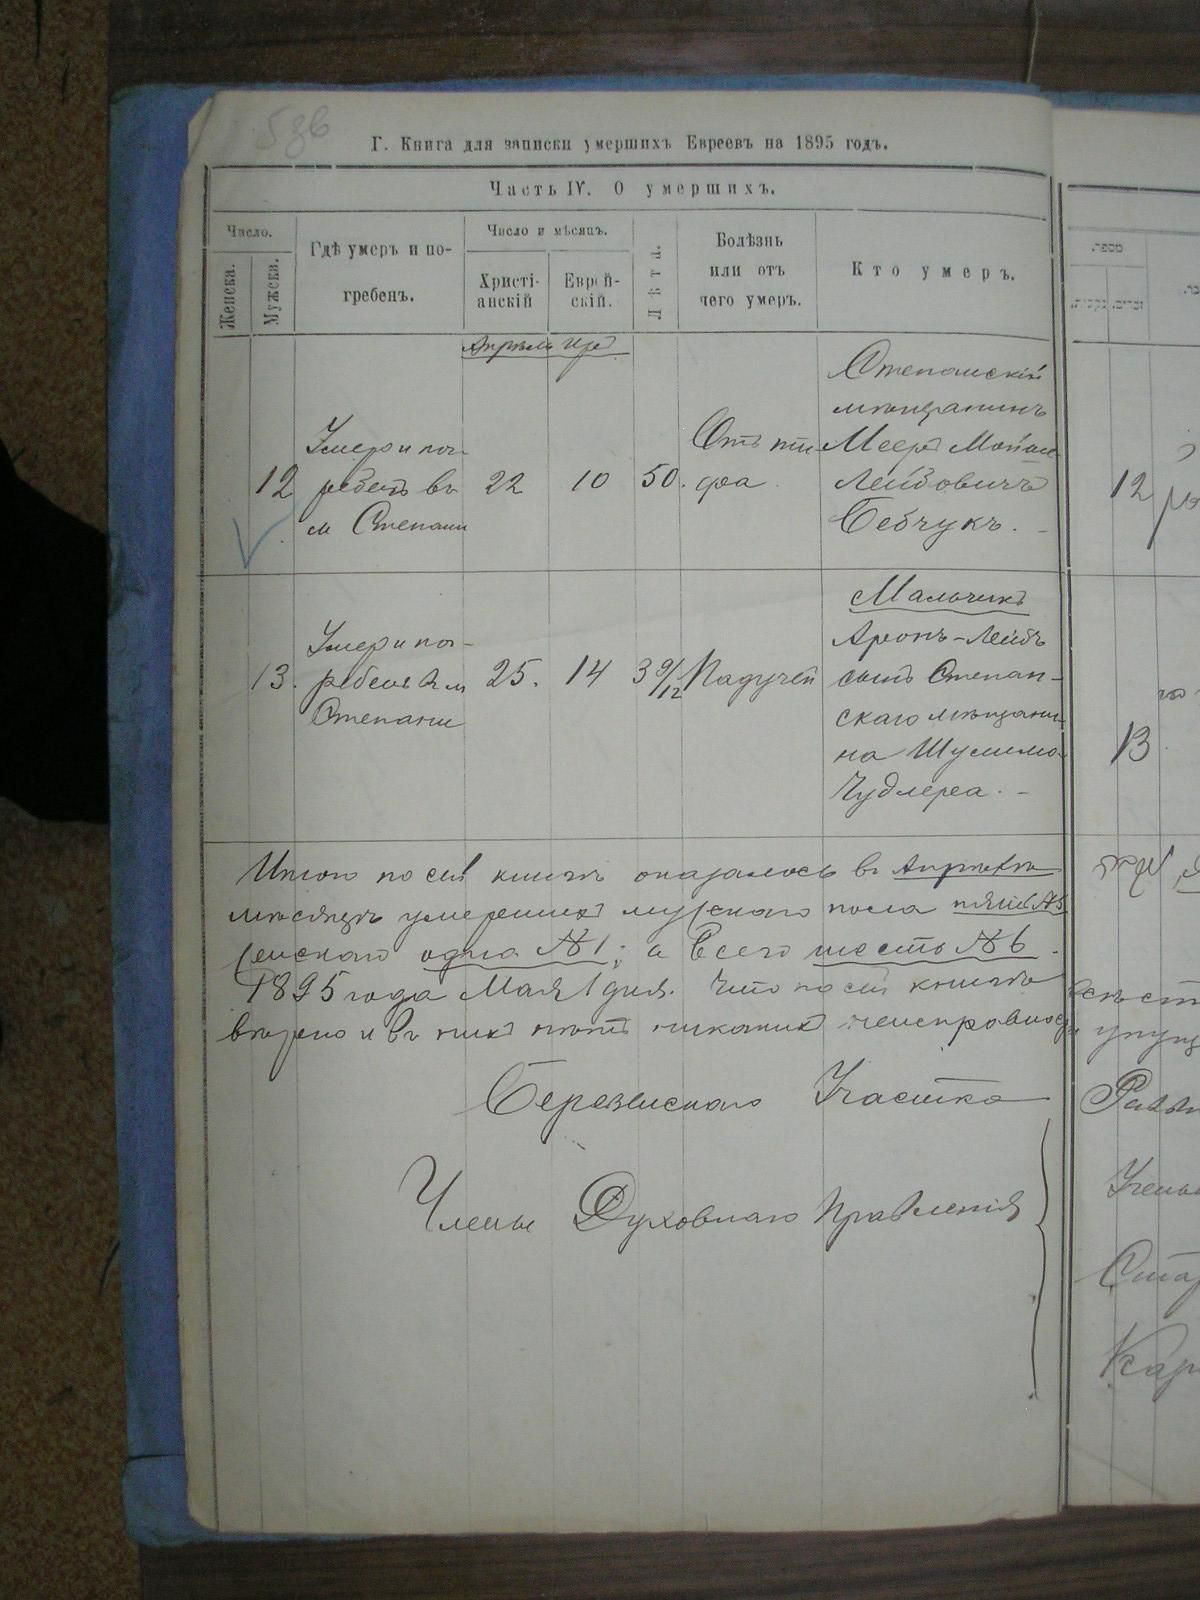 Г. Книга для записки умершихъ Евреевъ на 1895 годъ.
Часть IV. О умершихъ.
Число.
Женска.
Мужска.
Гдѣ умеръ и по-
гребенъ.
Число и мѣсяцъ.
Христі-
анскій
Еврей-
скій.
Лѣта.
Болѣзнь
или отъ
чего умеръ.
Кто умеръ.
Апрѣль
12
Умеръ и пог-
ребенъ въ
м Степани
22
10
50.
Отъ ти-
фа.
Степанскій
мѣщанинъ
Мееръ
Лейбовичъ
Бебчукъ.
13.
Умеръ и пог-
ребенъ въ м
Степани
25.
14
3 9/12
Падучей
Мальчикъ
Аронъ-Лейбъ
сынъ Степан-
скаго мѣщани-
на Шулима
Чудлера.
Итого по сей книгѣ оказалось въ Апрѣлѣ
мѣсяцѣ умершихъ мужскаго пола пять №5
женскаго одна №1; а всего шесть №6.
1895 года Мая 1 дня. Что по сей книгѣ
вѣрно и въ нихъ нѣтъ никакихъ неисправност
Березнскаго Участка
Члены Духовнаго Правленія
מספר.
זכרים.
נקבות.
12
13